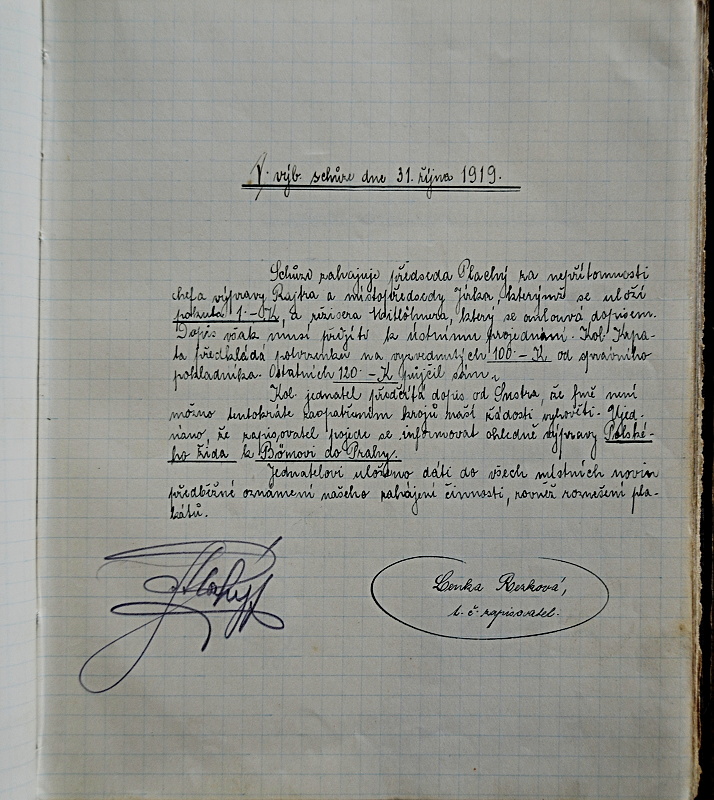 V. výb. schůze dne 31. října 1919.
Schůzi zahajuje předseda Plachý za nepřítomnosti
chefa výpravy Rajtra a místopředsedy Jirka, kterýmž se uloží
pokuta 1·-K, a režisera který se omlouvá dopisem.
Dopis však musí přijíti k ústnímu projednání. Kol. Kapa-
ta předkládá potvrzenku na vyzvednutých 100·-K, od správního
pokladníka. Ostatních 120·-K půjčil sám.
Kol. jednatel předčítá dopis od Smetra, že fmě není
možno tentokráte zaopatřením krojů naší žádosti vyhověti. Ujed-
náno, že zapisovatel pojede se informovat ohledně výpravy Polské-
ho žida k Bömovi do Prahy.
Jednatelovi uloženo dáti do všech místních novin
předběžné oznámení našeho zahájení činnosti, rovněž roznešení pla-
kátů.
Plachý
Lenka Rezková,
t. č. zapisovatel.